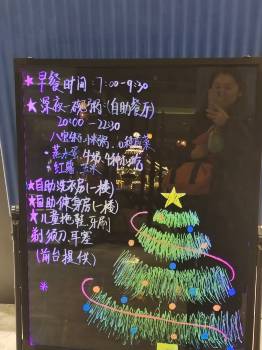 ★早餐时间:7:00-9:30
★深夜一碗粥:(自助餐厅)
20:00-22:30
八宝粥、小米粥、
•蒸
•红薯 玉米
★自助洗衣房(一楼)
★自助健身房(一楼)
★儿童拖鞋、牙刷
剃须刀、耳塞
(前台提供)